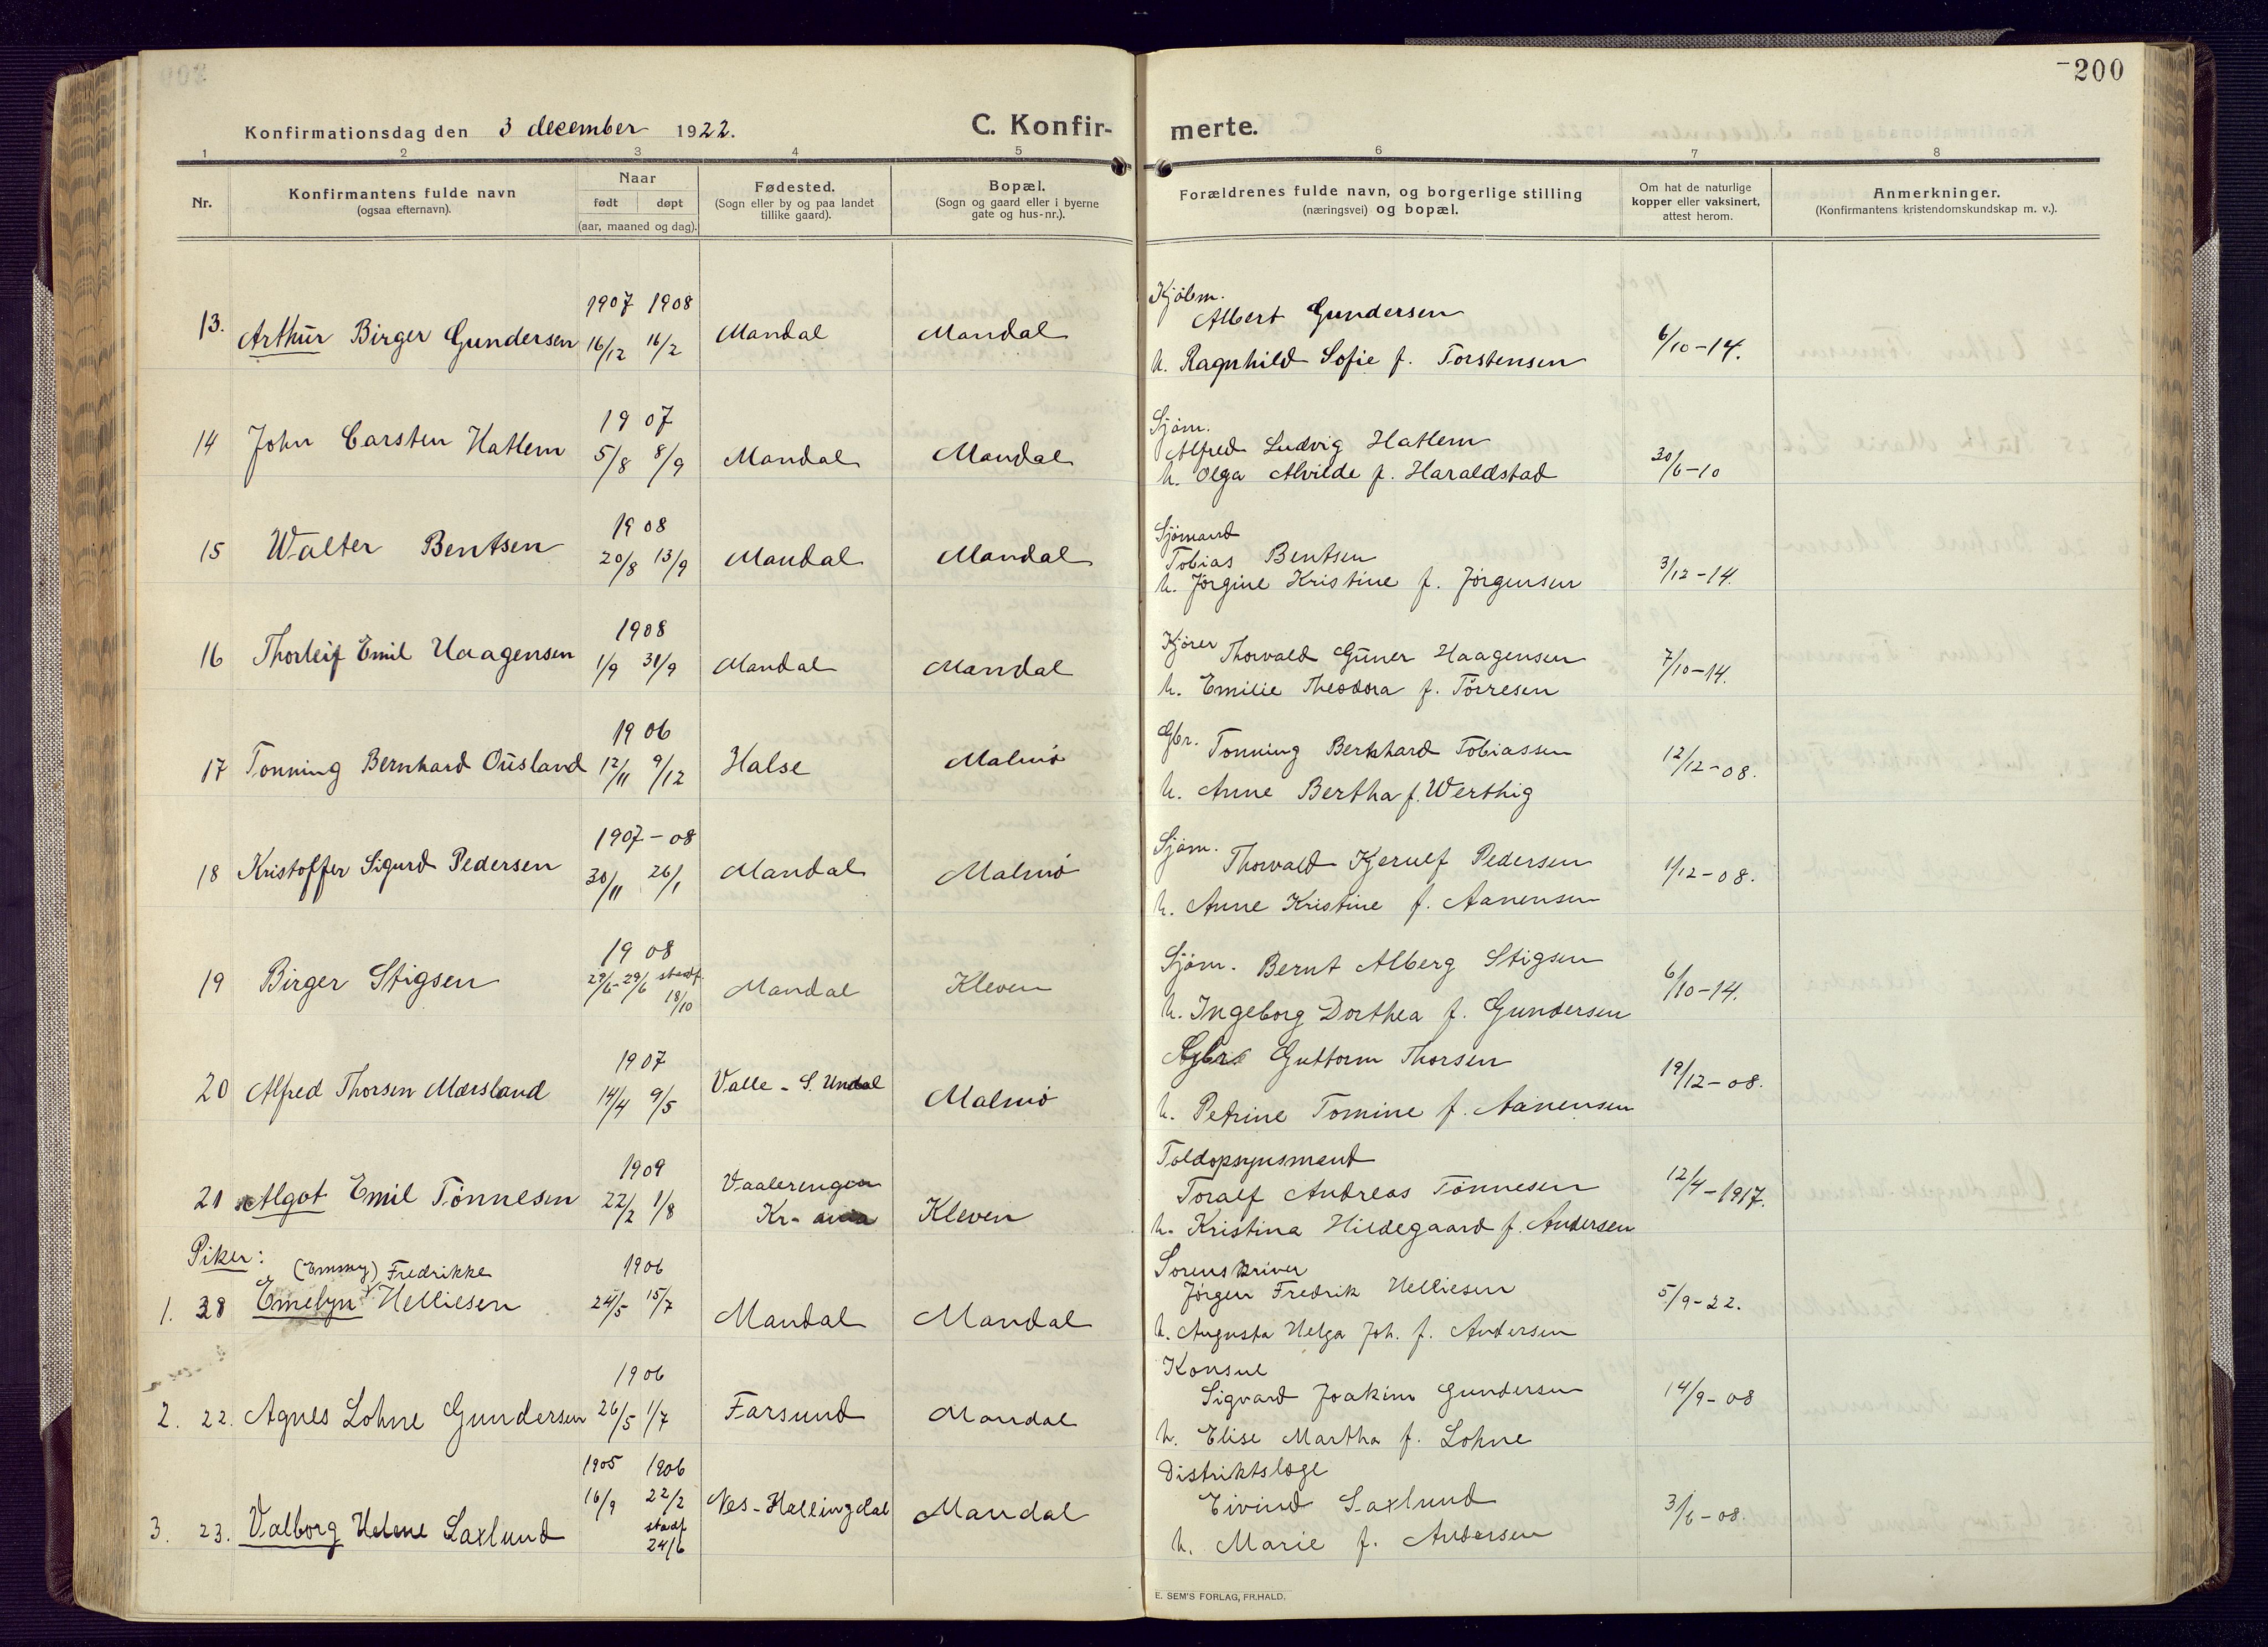 -200
Konfirmationsdag den 3 december 1922.
C. Konfir- merte.
1 2 3 4 5 6 7 8
Nr.
Konfirmantens fulde navn
(ogsaa efternavn).
Naar
født døpt
(aar, maaned og dag).
Fødested.
(Sogn eller by og paa landet
tillike gaard).
Bopæl.
(Sogn og gaard eller i byerne
gate og hus-nr.).
Forældrenes fulde navn, og borgerlige stilling
(næringsvei) og bopæl.
Om hat de naturlige
kopper eller vaksinert,
attest herom.
Anmerkninger.
(Konfirmantens kristendomskundskap m. v.).
1907 1908 Kjøbm.
13. Arthur Birger Gundersen 16/12 16/2 Mandal Mandal Albert Gundersen 6/10-14.
h. Ragnhild Sofie f. Torstensen
1907 Sjøm.
14 John Carsten Hatlem 5/8 8/9 Mandal Mandal Alfred Ludvig Hatlem 30/6-10
h. Olga Alvilde f. Haraldstad
1908 Sjømand
15 Walter Bentsen 20/8 13/9 Mandal Mandal Tobias Bentsen 3/12-14.
h. Jørgine Kristine f. Jørgensen
1908
16 Thorleif Emil Haagensen 1/9 31/9 Mandal Mandal Kjører Thorvald Guner Haagensen 7/10-14.
h. Emilie Theodora f. Tørresen
1906
17 Tonning Bernhard Ousland 12/11 9/12 Halse Malmø Gbr. Tonning Bernhard Tobiassen 12/12-08.
h. Anne Bertha f. Werthig
1907-08
18 Kristoffer Sigurd Pedersen 30/11 26/1 Mandal Malmø Sjøm. Thorvald Kjerulf Pedersen 1/12-08.
h. Anne Kristine f. Aanensen
1908
19 Birger Stigsen 29/6-29/6 stadf. 18/10 Mandal Kleven Sjøm. Bernt Alberg Stigsen 6/10-14.
h. Ingeborg Dorthea f. Gundersen
1907
20 Alfred Thorsen Mærsland 14/4 9/5 Valle - S. Undal Malmø Guttorm Thorsen 19/12-08.
h. Petrine Tomine f. Aanensen
1909 Toldopsynsmand
21 Algot Emil Tønnesen 22/2 1/8 Vaalerengen Kr-ania Kleven Toralf Andreas Tönnesen 12/4-1917.
h. Kristina Hildegaard f. Andersen
Piker:
(Emmy) Fredrikke 1906 Sorenskriver
1. 38 Emelyn Helliesen 24/5 15/7 Mandal Mandal Jörgen Fredrik Helliesen 5/9-22.
h. Augusta Helga Joh. f. Andersen
1906 Konsul
2. 22. Agnes Lohne Gundersen 26/5 1/7 Farsund Mandal Sigvard Joakim Gundersen 14/9-08
h. Elise Martha f. Lohne
1905 1906 Distriktslæge
3. 23. Valborg Helene Saxlund 16/9 22/2 stadf 24/6 Nes-Hallingdal Mandal Eivind Saxlund 3/6-08.
h. Marie f. Andersen
E. SEM'S FORLAG, FR.HALD.